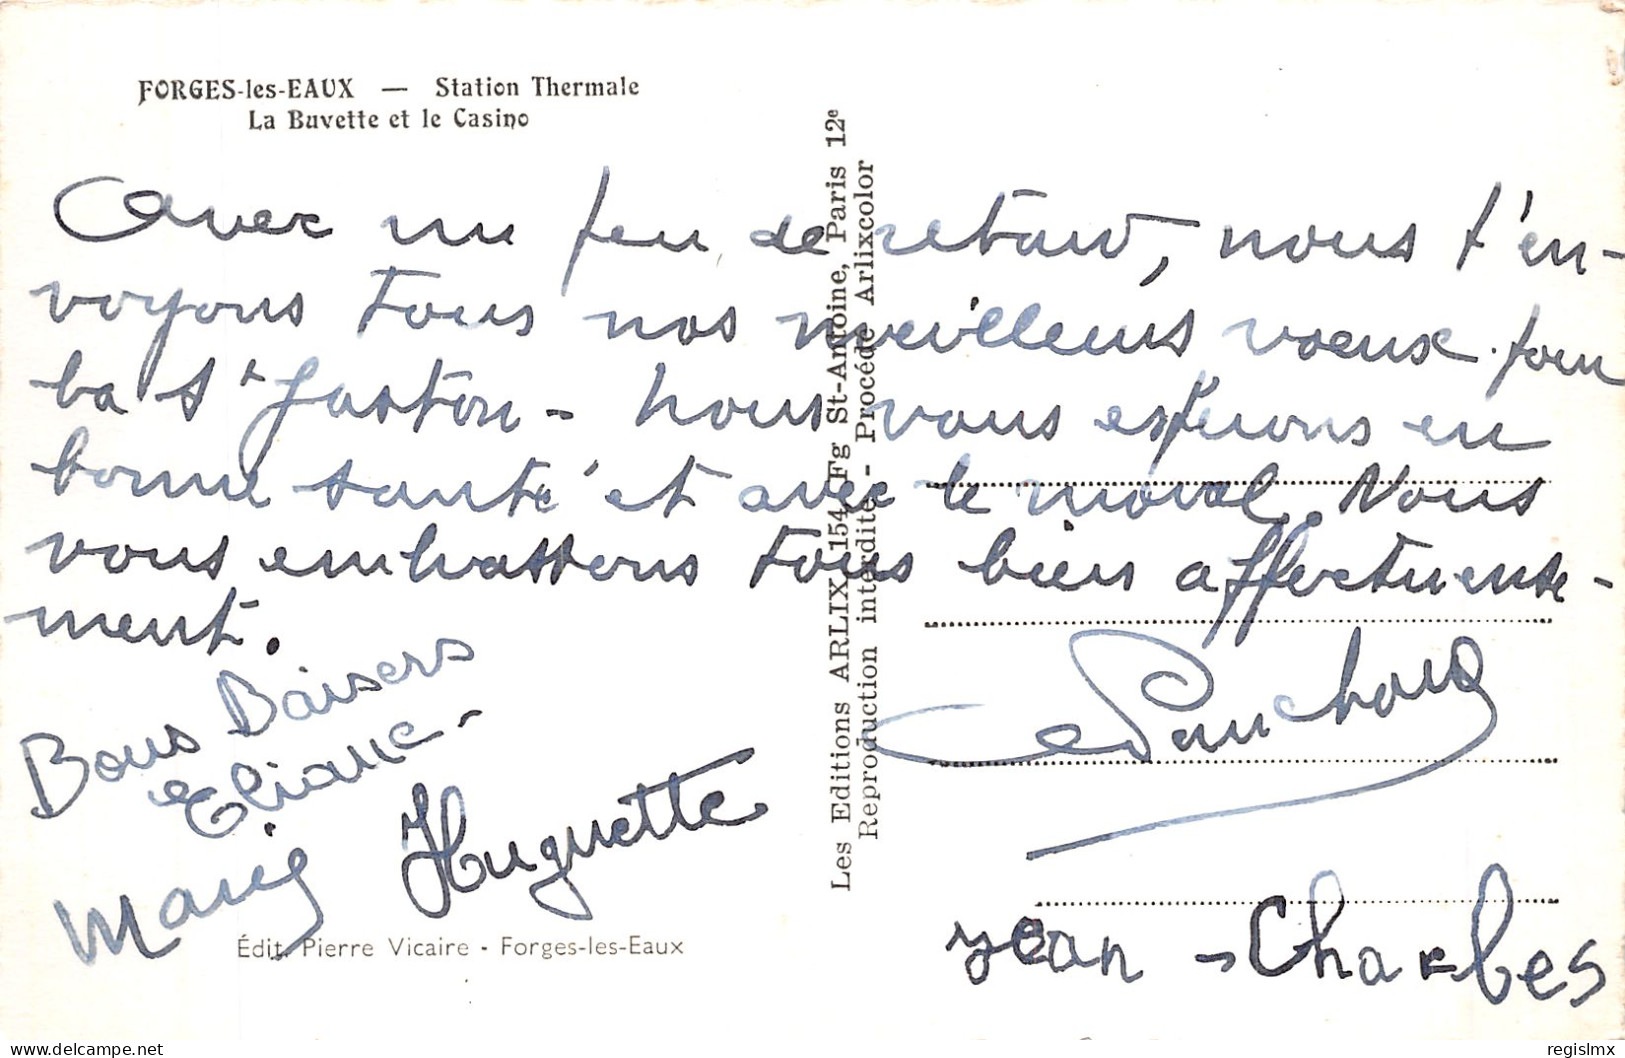 FORGES-les-EAUX — Station Thermale
La Buvette et le Casino
Avec un peu de retard, nous t'en-
voyons tous nos meilleurs voeux pour
ta St Gaston - Nous vous espérons en
bonne santé et avec le moral. Nous
vous embrassons tous bien affectueuse-
ment.
Bons Baisers
Eliane -
Huguette
Jean - Charles
Les Editions ARLIX 154, Fg St-Antoine, Paris 12e
Reproduction interdite - Procédé Arlixcolor
Édit. Pierre Vicaire - Forges-les-Eaux
delcampe.net
regislmx